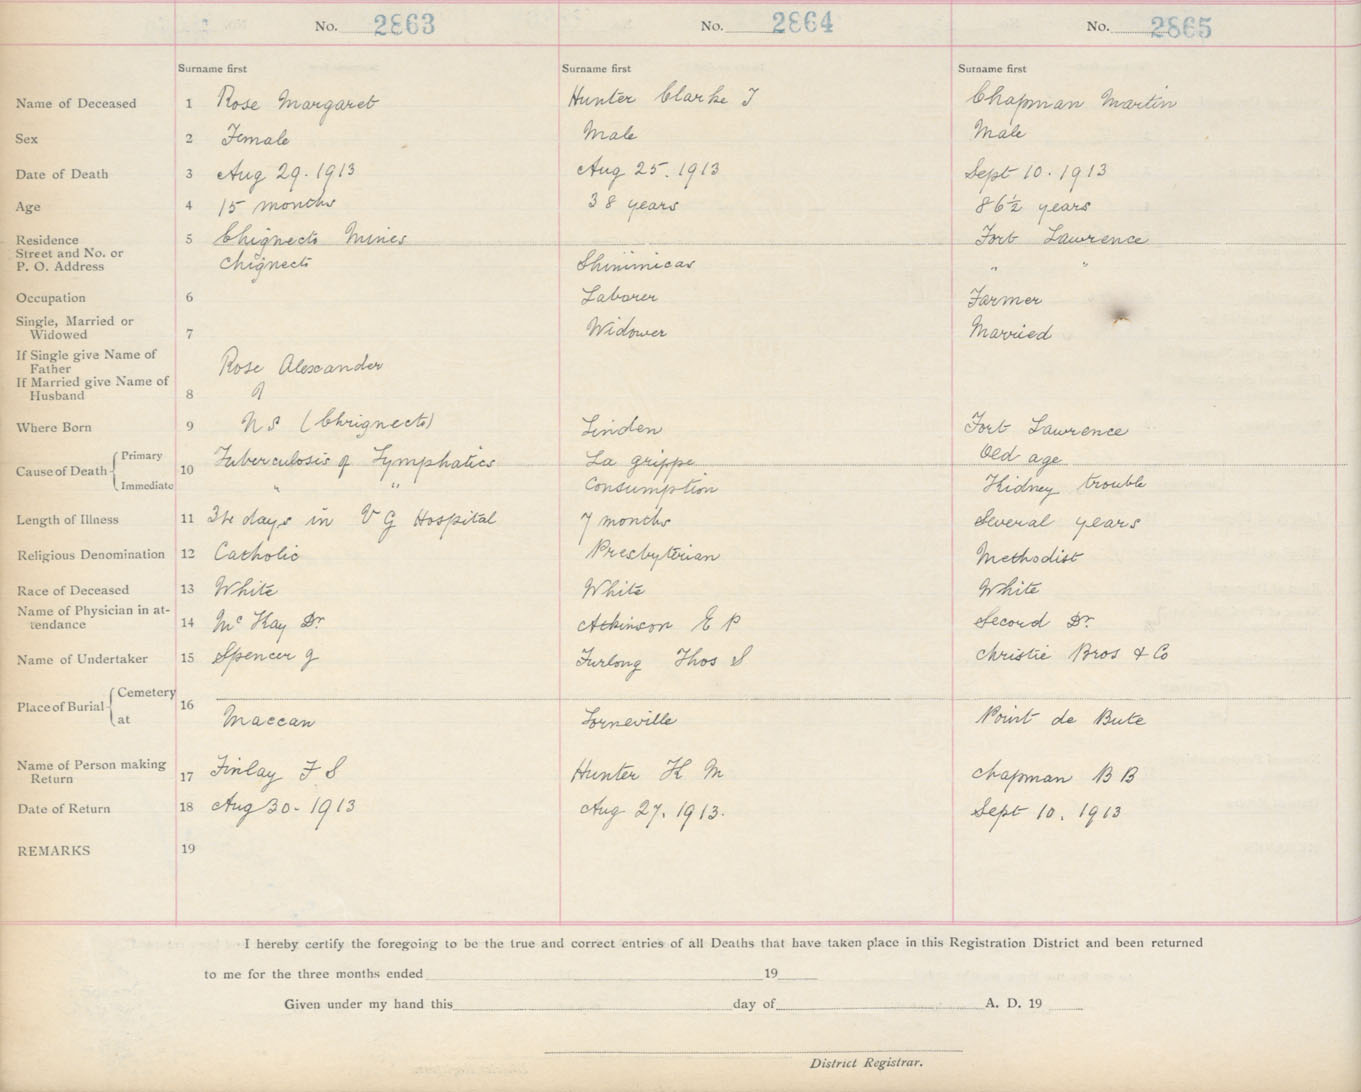 No. 2863 No. 2864 No. 2865
Surname first Surname first Surname first
Name of Deceased 1 Rose Margaret Hunter Clarke J Chapman Martin
Sex 2 Female Male Male
Date of Death 3 Aug 29. 1913 Aug 25. 1913 Sept 10. 1913
Age 4 15 months 38 years 86½ years
Residence 5 Chignecto Mines Fort Lawrence
Street and No. or
P. O. Address Chignecto Shinimicas " "
Occupation 6 Laborer Farmer
Single, Married or
Widowed 7 Widower Married
If Single give Name of
Father Rose Alexander
If Married give Name of
Husband 8
Where Born 9 N S (Chrignecto) Linden Fort Lawrence
Cause of Death Primary 10 Tuberculosis of Lymphatics La grippe Old age
Immediate " " Consumption Kidney trouble
Length of Illness 11 days in V G Hospital 7 months Several years
Religious Denomination 12 Catholic Presbyterian Methodist
Race of Deceased 13 White White White
Name of Physician in at-
tendance 14 Mc Kay Dr. Atkinson E P Secord Dr.
Name of Undertaker 15 Spencer J Furlong Thos S Christie Bros & Co
Place of Burial Cemetery 16
at Maccan Lorneville Point de Bute
Name of Person making
Return 17 Finlay F S Hunter K M Chapman B B
Date of Return 18 Aug 30 - 1913 Aug 27. 1913. Sept 10. 1913
REMARKS 19
I hereby certify the foregoing to be the true and correct entries of all Deaths that have taken place in this Registration District and been returned
to me for the three months ended 19
Given under my hand this day of A. D. 19
District Registrar.